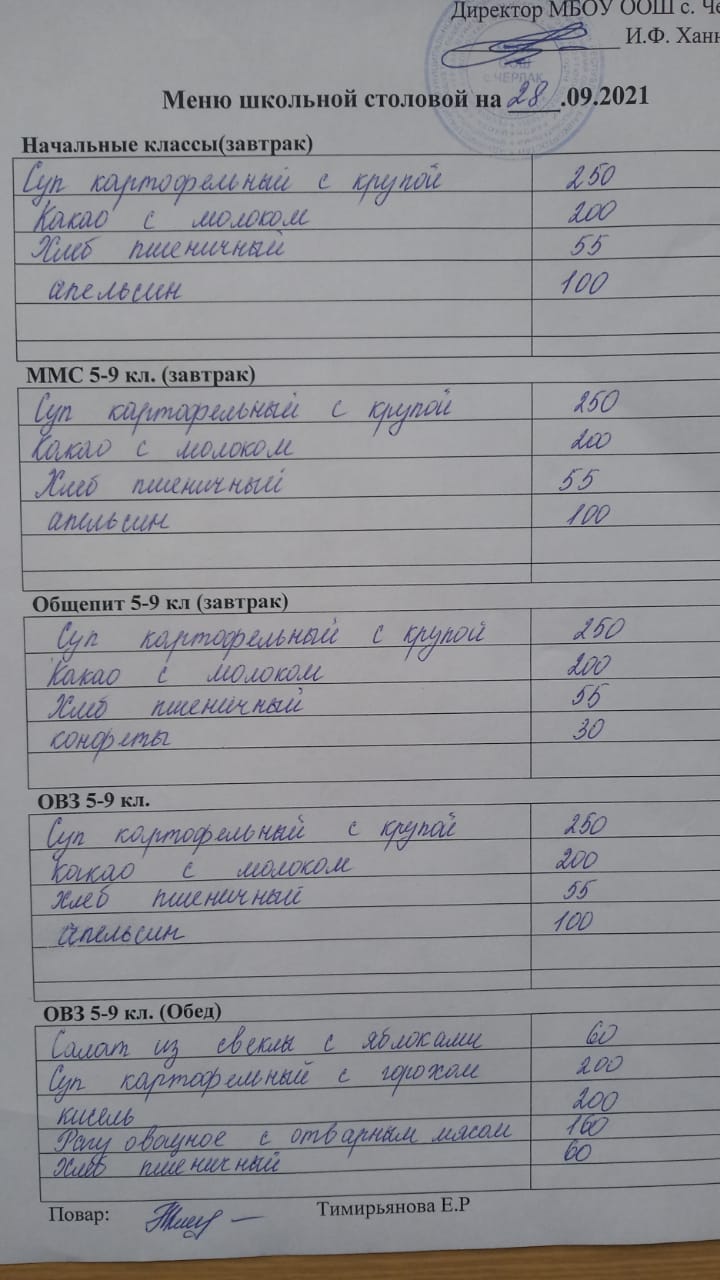 Директор МБОУ ООШ с. Че
И.Ф. Ханн
ООШ
с.ЧЕРЛАК
Меню школьной столовой на 28.09.2021
Начальные классы(завтрак)
Суп картофельный с крупой 250
Какао с молоком 200
Хлеб пшеничный 55
апельсин 100
ММС 5-9 кл. (завтрак)
Суп картофельный с крупой 250
Какао с молоком 200
Хлеб пшеничный 55
апельсин 100
Общепит 5-9 кл (завтрак)
Суп картофельный с крупой 250
Какао с молоком 200
Хлеб пшеничный 55
конфеты 30
ОВЗ 5-9 кл.
Суп картофельный с крупой 250
Какао с молоком 200
Хлеб пшеничный 55
апельсин 100
ОВЗ 5-9 кл. (Обед)
Салат из свеклы с яблоками 60
Суп картофельный с горохом 200
кисель 200
Рагу овощное с отварным мясом 160
Хлеб пшеничный 60
Повар: Тимирьянова Е.Р